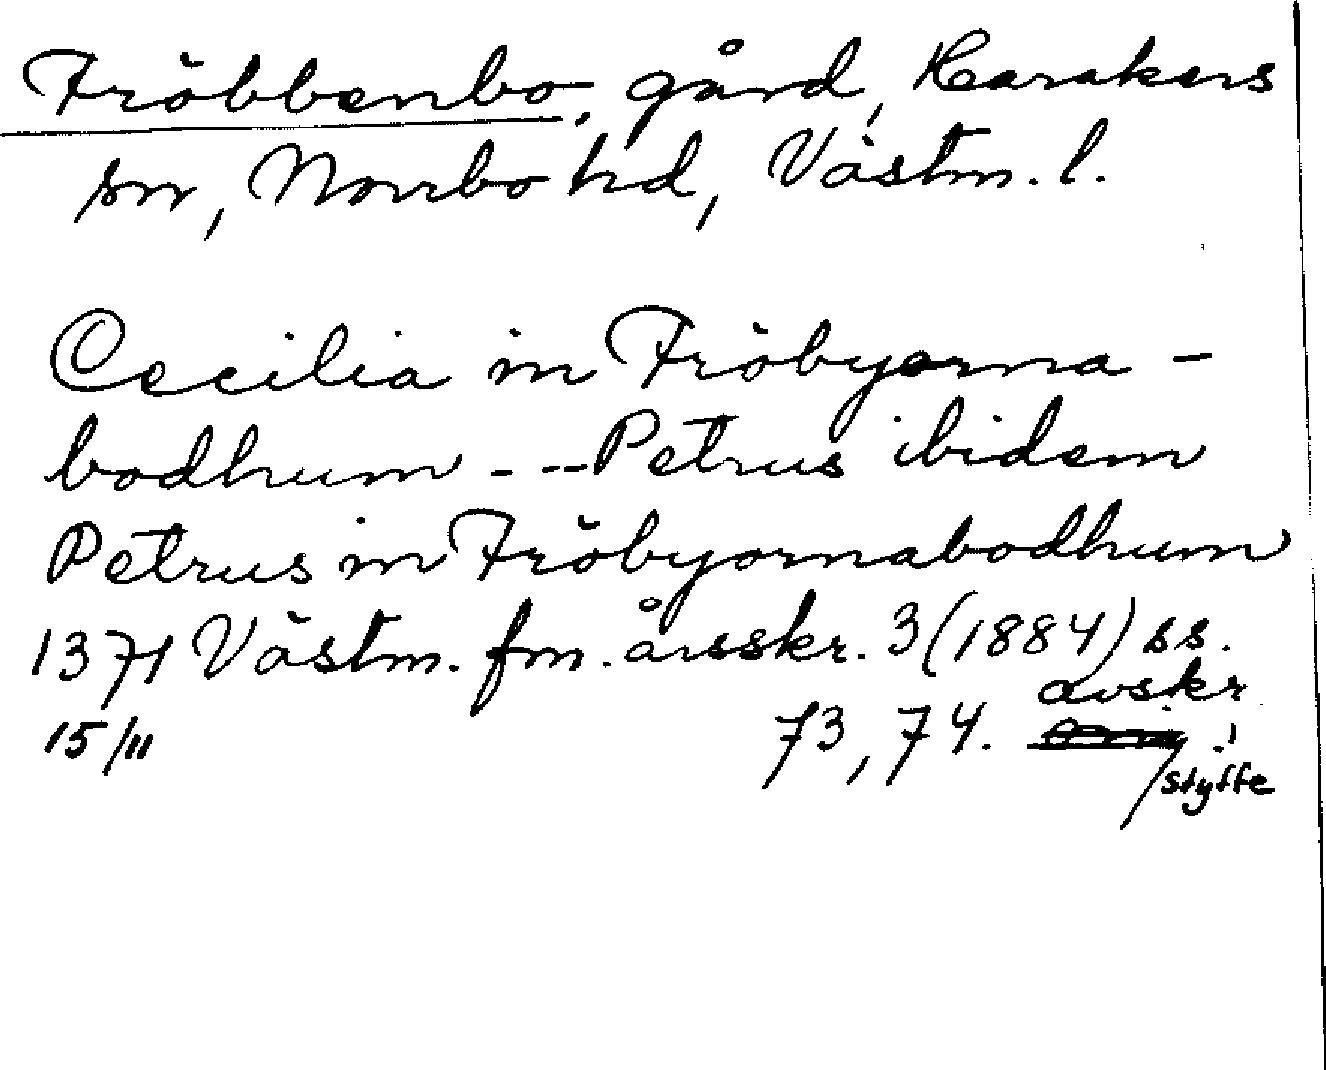 Fröbbenbo, gård, Harakers
sn, Norrbo hd, Västm. l.
Cecilia in Fröbyorna-
bodhum - -- Petrus ibidem
Petrus in Fröbyornabodhum
1371 Västm. fm. årsskr. 3 (1884) ss.
73, 74. avskr.!
15/11
/Styffe